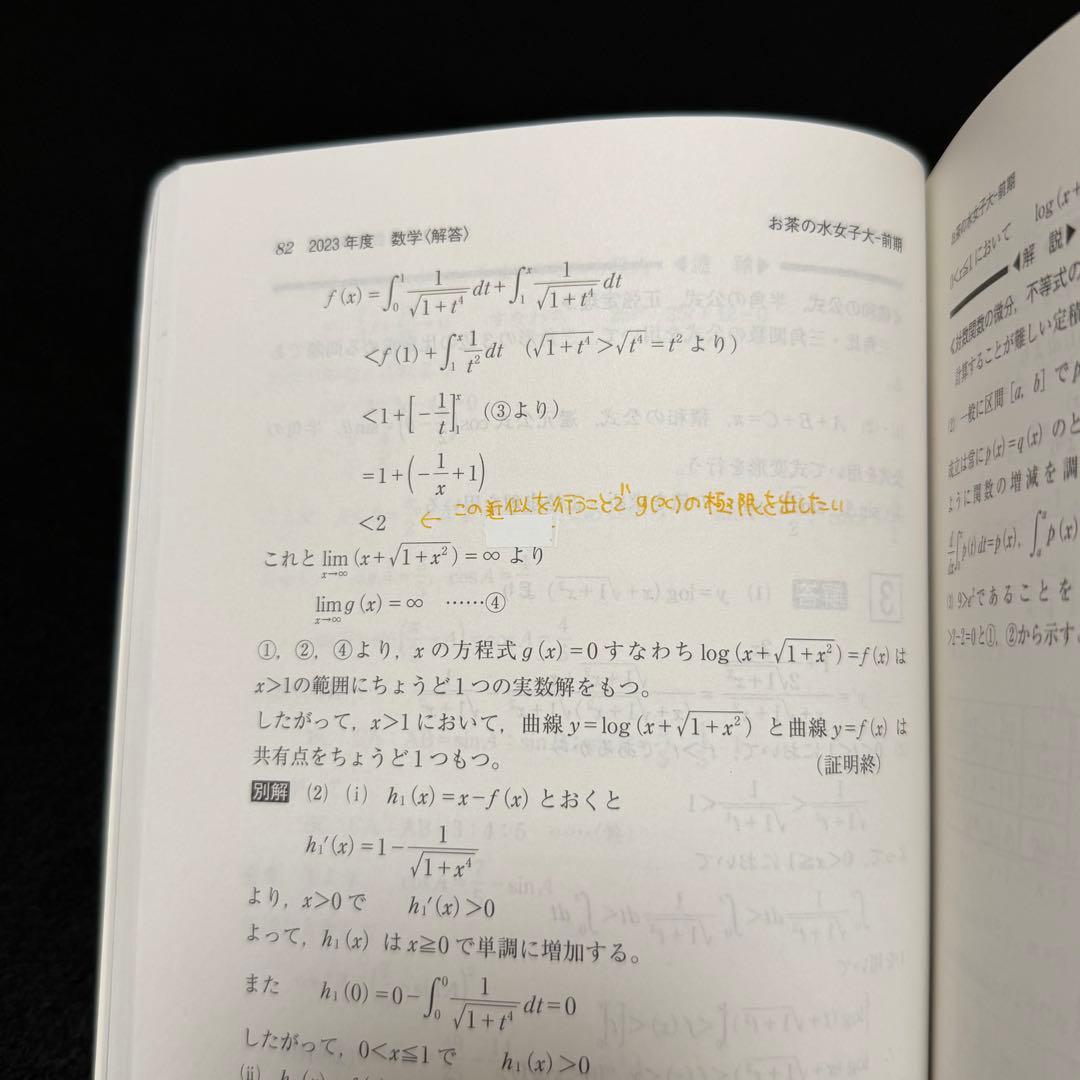 82 2023年度 数学〈解答〉 お茶の水女子大-前期
f(x)=∫₀¹ 1/√(1+t⁴) dt+∫₁ˣ 1/√(1+t⁴) dt
<f(1)+∫₁ˣ 1/t² dt (√(1+t⁴)>√t⁴=t² より)
<1+[-1/t]₁ˣ (③より)
=1+(-1/x+1)
<2 ← この近似を行うことで g(x)の極限を出したい
これと lim_{x→∞}(x+√(1+x²))=∞ より
lim_{x→∞} g(x)=∞ ……④
①, ②, ④より, xの方程式 g(x)=0 すなわち log(x+√(1+x²))=f(x) は
x>1の範囲にちょうど1つの実数解をもつ。
したがって, x>1 において, 曲線 y=log(x+√(1+x²)) と曲線 y=f(x) は
共有点をちょうど1つもつ。 (証明終)
別解 (2) (i) h₁(x)=x-f(x) とおくと
h₁′(x)=1-1/√(1+x⁴)
より, x>0 で h₁′(x)>0
よって, h₁(x) は x≧0 で単調に増加する。
また h₁(0)=0-∫₀⁰ 1/√(1+t⁴) dt=0
したがって, 0<x≦1 で h₁(x)>0
(ii)
お茶の水女子大-前期
0<x≦1 において log(x+
◀解 説▶
≪対数関数の微分, 不等式の
計算することが難しい定積
(2) 一般に区間 [a, b] で p
成立は常に p(x)=q(x) のと
ように関数の増減を調
p(t)dt=p(x), ∫ₐᵇ p(x)
であることを
>2-2=0と①, ②から示す